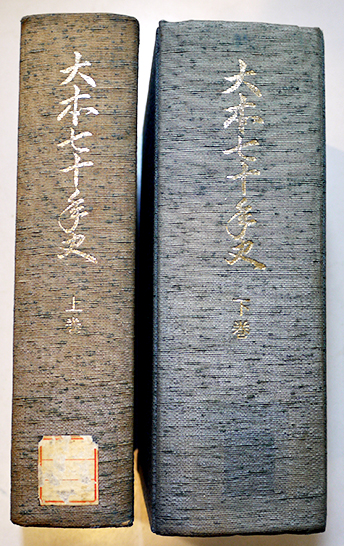 大本七十年史
上巻
大本七十年史
下巻